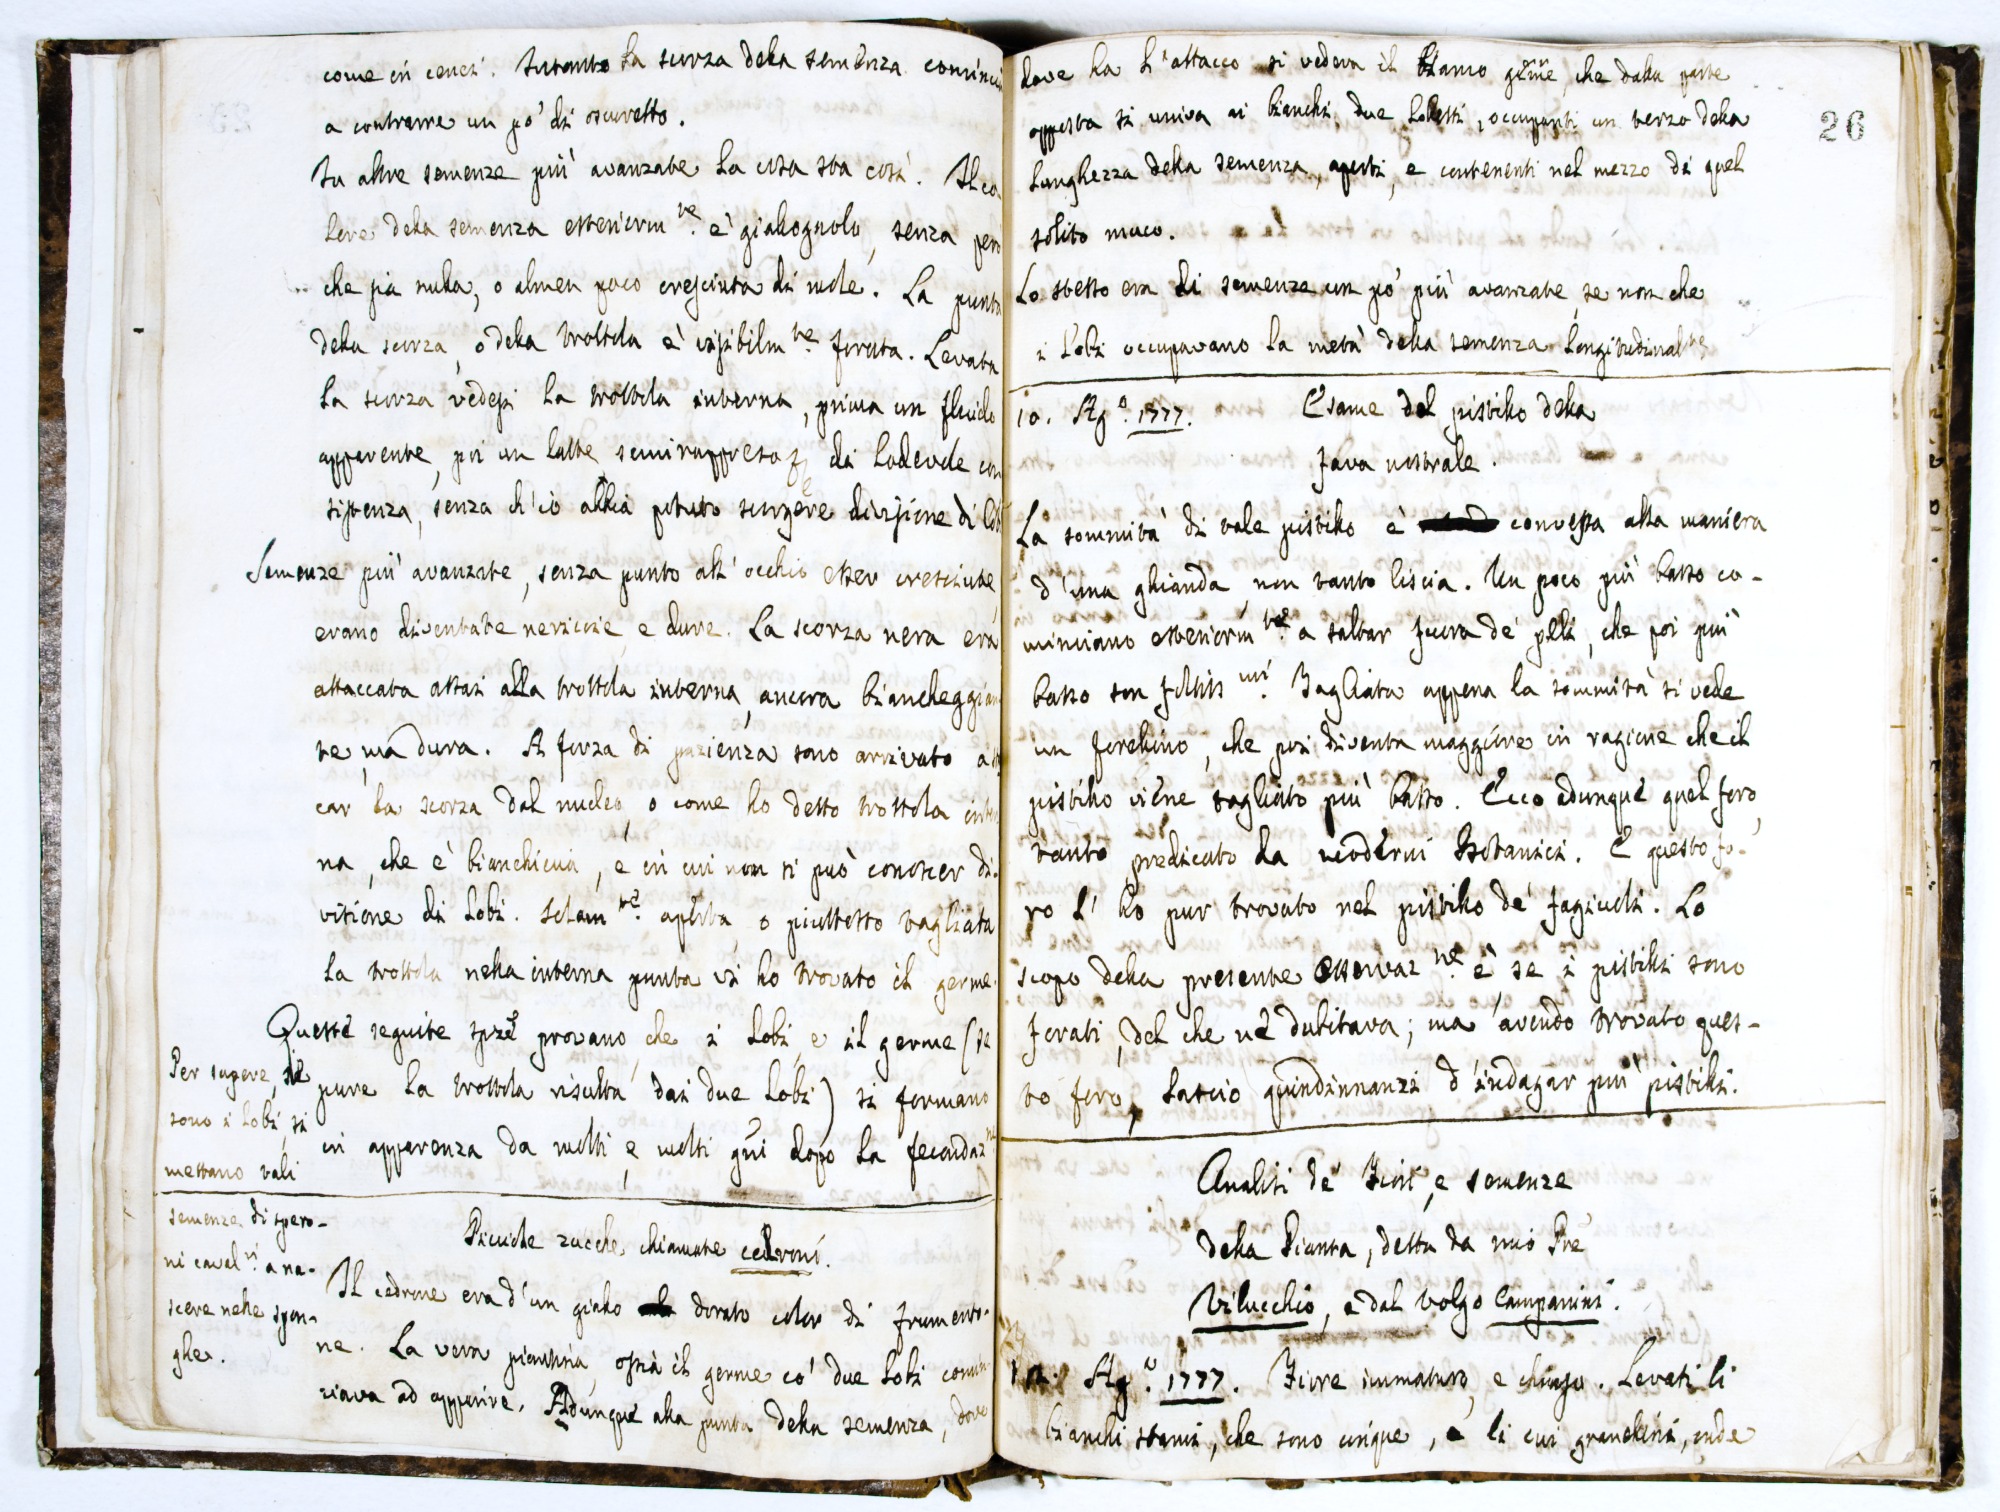 come in ceneri. Intanto la scorza della semenza comincia
a contrarre un po' di oscuretto.
In altre semenze più avanzate la cosa sta così. Il co-
lore della semenza esteriorm.te è giallognolo, senza però
che sia nulla, o almen poco cresciuta di mole. La punta
della scorza, o della trottola è visibilm.te forata. Levata
la scorza vedesi la trottola interna, prima un fluido
apparente, poi un latte semirappreso di lodevole con
sistenza, senza ch'io abbia potuto scorgere divisione di lobi
Semenze più avanzate, senza punto all'occhio esser cresciute,
erano diventate nericcie, e dure. La scorza nera era
attaccata assai alla trottola interna, ancora biancheggian
te, ma dura. A forza di pazienza sono arrivato a
car la scorza dal nucleo, o come ho detto trottola inter
na, che è bianchiccia, e in cui non si può conoscer di-
visione di lobi. Solam.te aperta, o piuttosto tagliata
la trottola nella interna punta vi ho trovato il germe.
Queste seguite sprze provano, che i lobi, e il germe (se
pure la trottola risulta dai due lobi) si formano
in apparenza da molti, e molti gni dopo la fecondaz.ne
Per sapere, se
sono i lobi, si
mettano tali
semenze di spero-
ni caval.ri a na-
scere nelle spon-
ghe.
Picciole zucche chiamate cedroni.
Il cedrone era d'un giallo dorato color di frumento-
ne. La vera piantina, ossia il germe co' due lobi comin-
ciava ad apparire. Adunque alla punta della semenza, dove
26
dove ha l'attacco si vedeva il bianco germe, che dalla parte
opposta si univa ai bianchi due lobetti, occupanti un terzo della
lunghezza della semenza, aperti, e contenenti nel mezzo di quel
solito muco.
Lo stesso era di semenze un po' più avanzate, se non che
i lobi occupavano la metà della semenza longitudinal.te
10. Ag.o 1777. Esame del pistillo della
fava nostrale.
La sommità di tale pistillo è convessa alla maniera
d'una ghianda, non tanto liscia. Un poco più basso co-
minciano esteriorm.te a saltar fuora de' peli, che poi più
basso son foltiss.mi. Tagliata appena la sommità si vede
un forellino, che poi diventa maggiore in ragione che il
pistillo viene tagliato più basso. Ecco adunque quel foro,
tanto predicato da moderni Botanici. E questo fo-
ro l'ho pur trovato nel pistillo de' fagiuoli. Lo
scopo della presente osservaz.ne è, se i pistilli sono
forati, del che ne dubitava; ma avendo trovato ques-
to foro, lascio quindinnanzi d'indagar più pistilli.
Analisi de' Fiori, e semenze
della Pianta, detta da mio Pre
Vilucchio, e dal volgo Campanini.
12. Ag.o 1777. Fiore immaturo, e chiuso. Levati li
bianchi stami, che sono cinque, e li cui granellini, onde